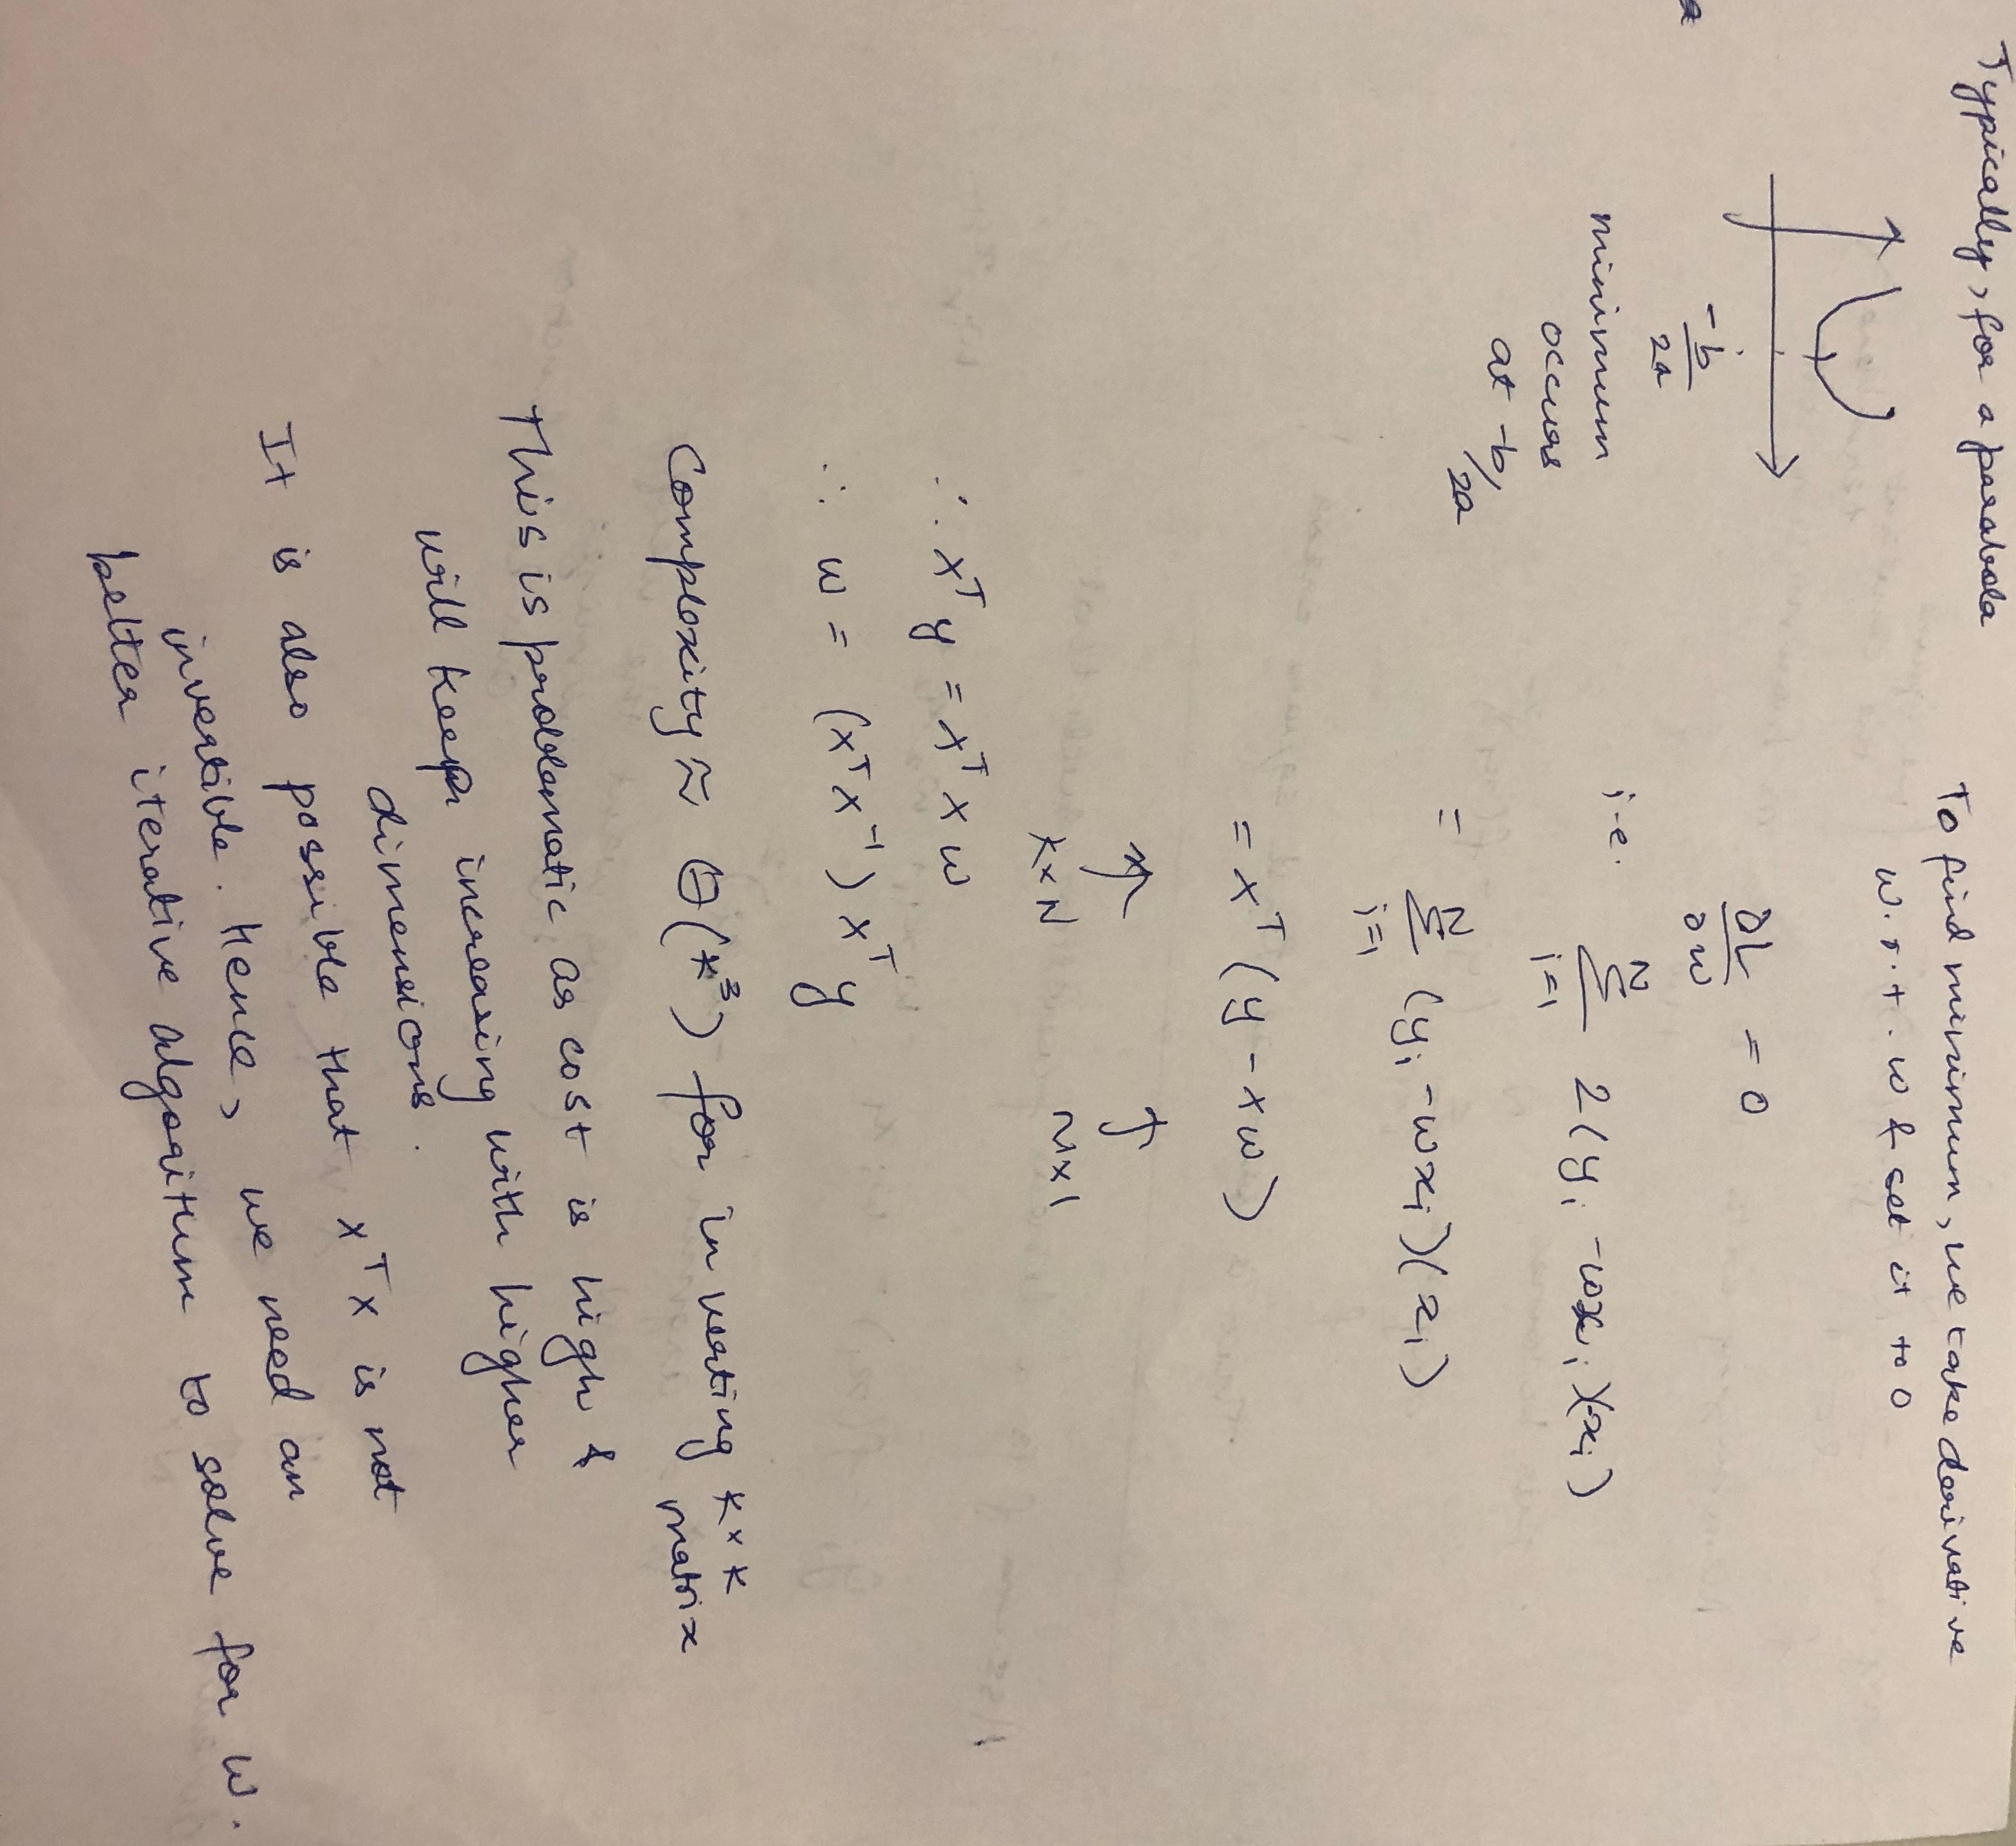 Typically, for a parabola
-b
2a
minimum
occurs
at -b/2a
To find minimum, we take derivative
w.r.t. w & set it to 0
∂L/∂w = 0
i.e. N∑i=1 2(yi - wxi)(-xi)
= N∑i=1 (yi - wxi)(xi)
= x^T (y - xw)
K×N N×1
∴ x^T y = x^T x w
∴ w = (x^T x^-1) x^T y
Complexity ≈ θ(K^3) for inverting K×K
matrix
This is problematic as cost is high &
will keep increasing with higher
dimensions.
It is also possible that x^T x is not
invertible. Hence, we need an
better iterative algorithm to solve for w.